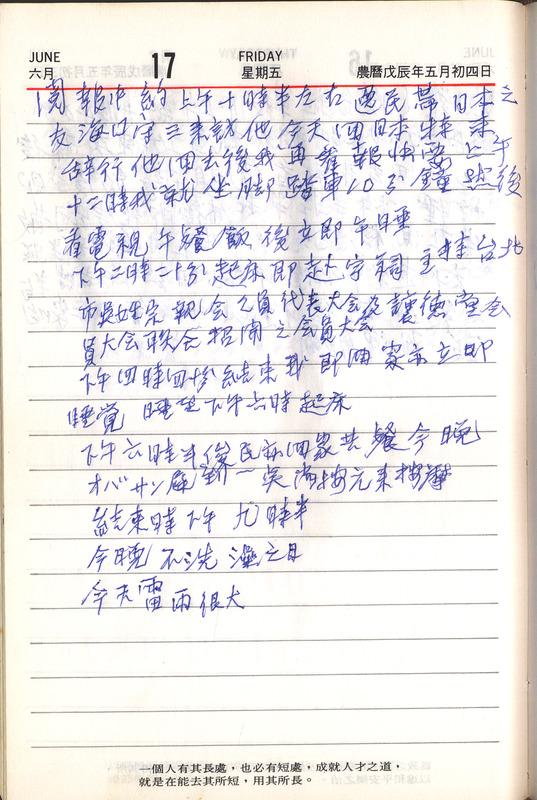 JUNE 17 FRIDAY
六月 星期五 農曆戊辰年五月初四日
閱報中 約上午十時半左右 民 日本之
友海口守三來訪 他今天回日本特來
辞行 他回去後我再看報 上午
十二時我就坐脚踏車10分鐘 然後
看電視 午餐飯後立即午睡
下午二時二十分起床即赴宗祠主持台北
市吳姓宗親会会員代表大会及讓德堂会
員大会联合招開之会員大会
下午四時四十分結束 我即回家 立即
睡覚 睡至下午六時起床
下午六時半 民 回家共餐 今晚
オバサン 吳 元來按摩
結束時下午九時半
今晚不洗澡之日
今天雷雨很大
一個人有其長處，也必有短處，成就人才之道，
就是在能去其所短，用其所長。